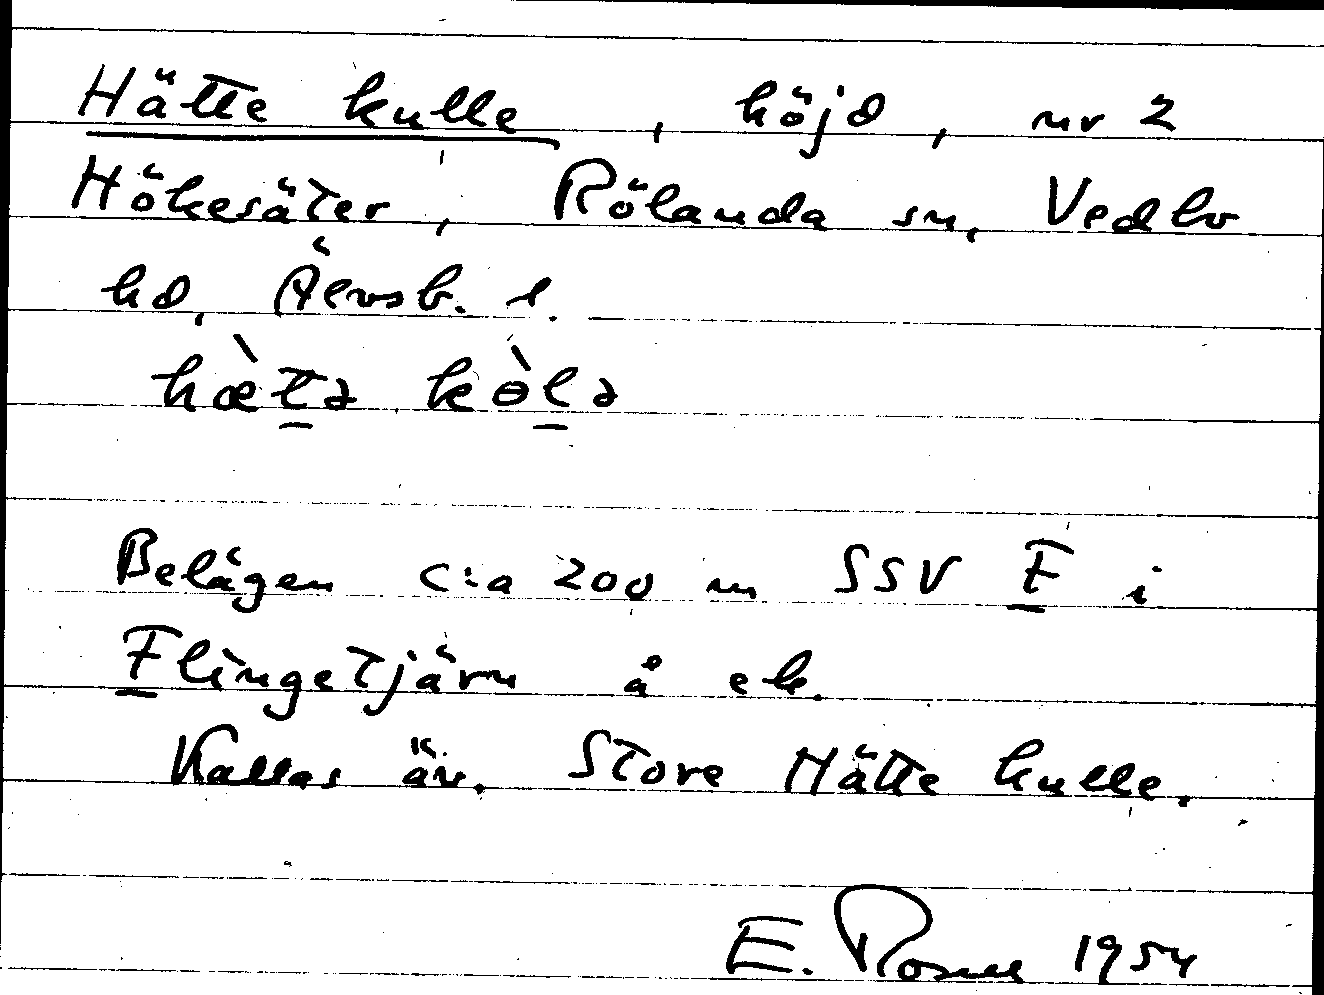 Hätte kulle, höjd, nr 2
Hökesäter, Rölanda sn, Vedbo
hd, Älvsb. l.
hæ̀t̲ə kɵ̀l̲ə
Belägen c:a 200 m SSV F̲ i
F̲lingetjärn å ek.
Kallas äv. Store Hätte kulle.
E. 1954